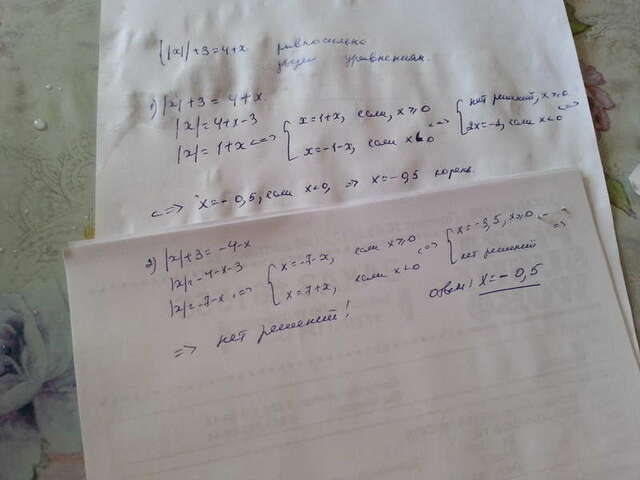 ||x|+3=4+x равносильно
двум уравнениям.
1) |x|+3=4+x.
|x|=4+x-3
|x|=1+x <=> { x=1+x, если, x≥0 <=> { нет решений, x≥0
x=-1-x, если x<0 2x=-1, если x<0 <=>
<=> x=-0,5, если x<0, => x=-0,5 корень.
2) |x|+3=-4-x
|x|=-4-x-3
|x|=-7-x <=> { x=-7-x, если x≥0 <=> { x=-3,5, x≥0
x=7+x, если x<0 нет решений =>
=> нет решений! Ответ: x=-0,5